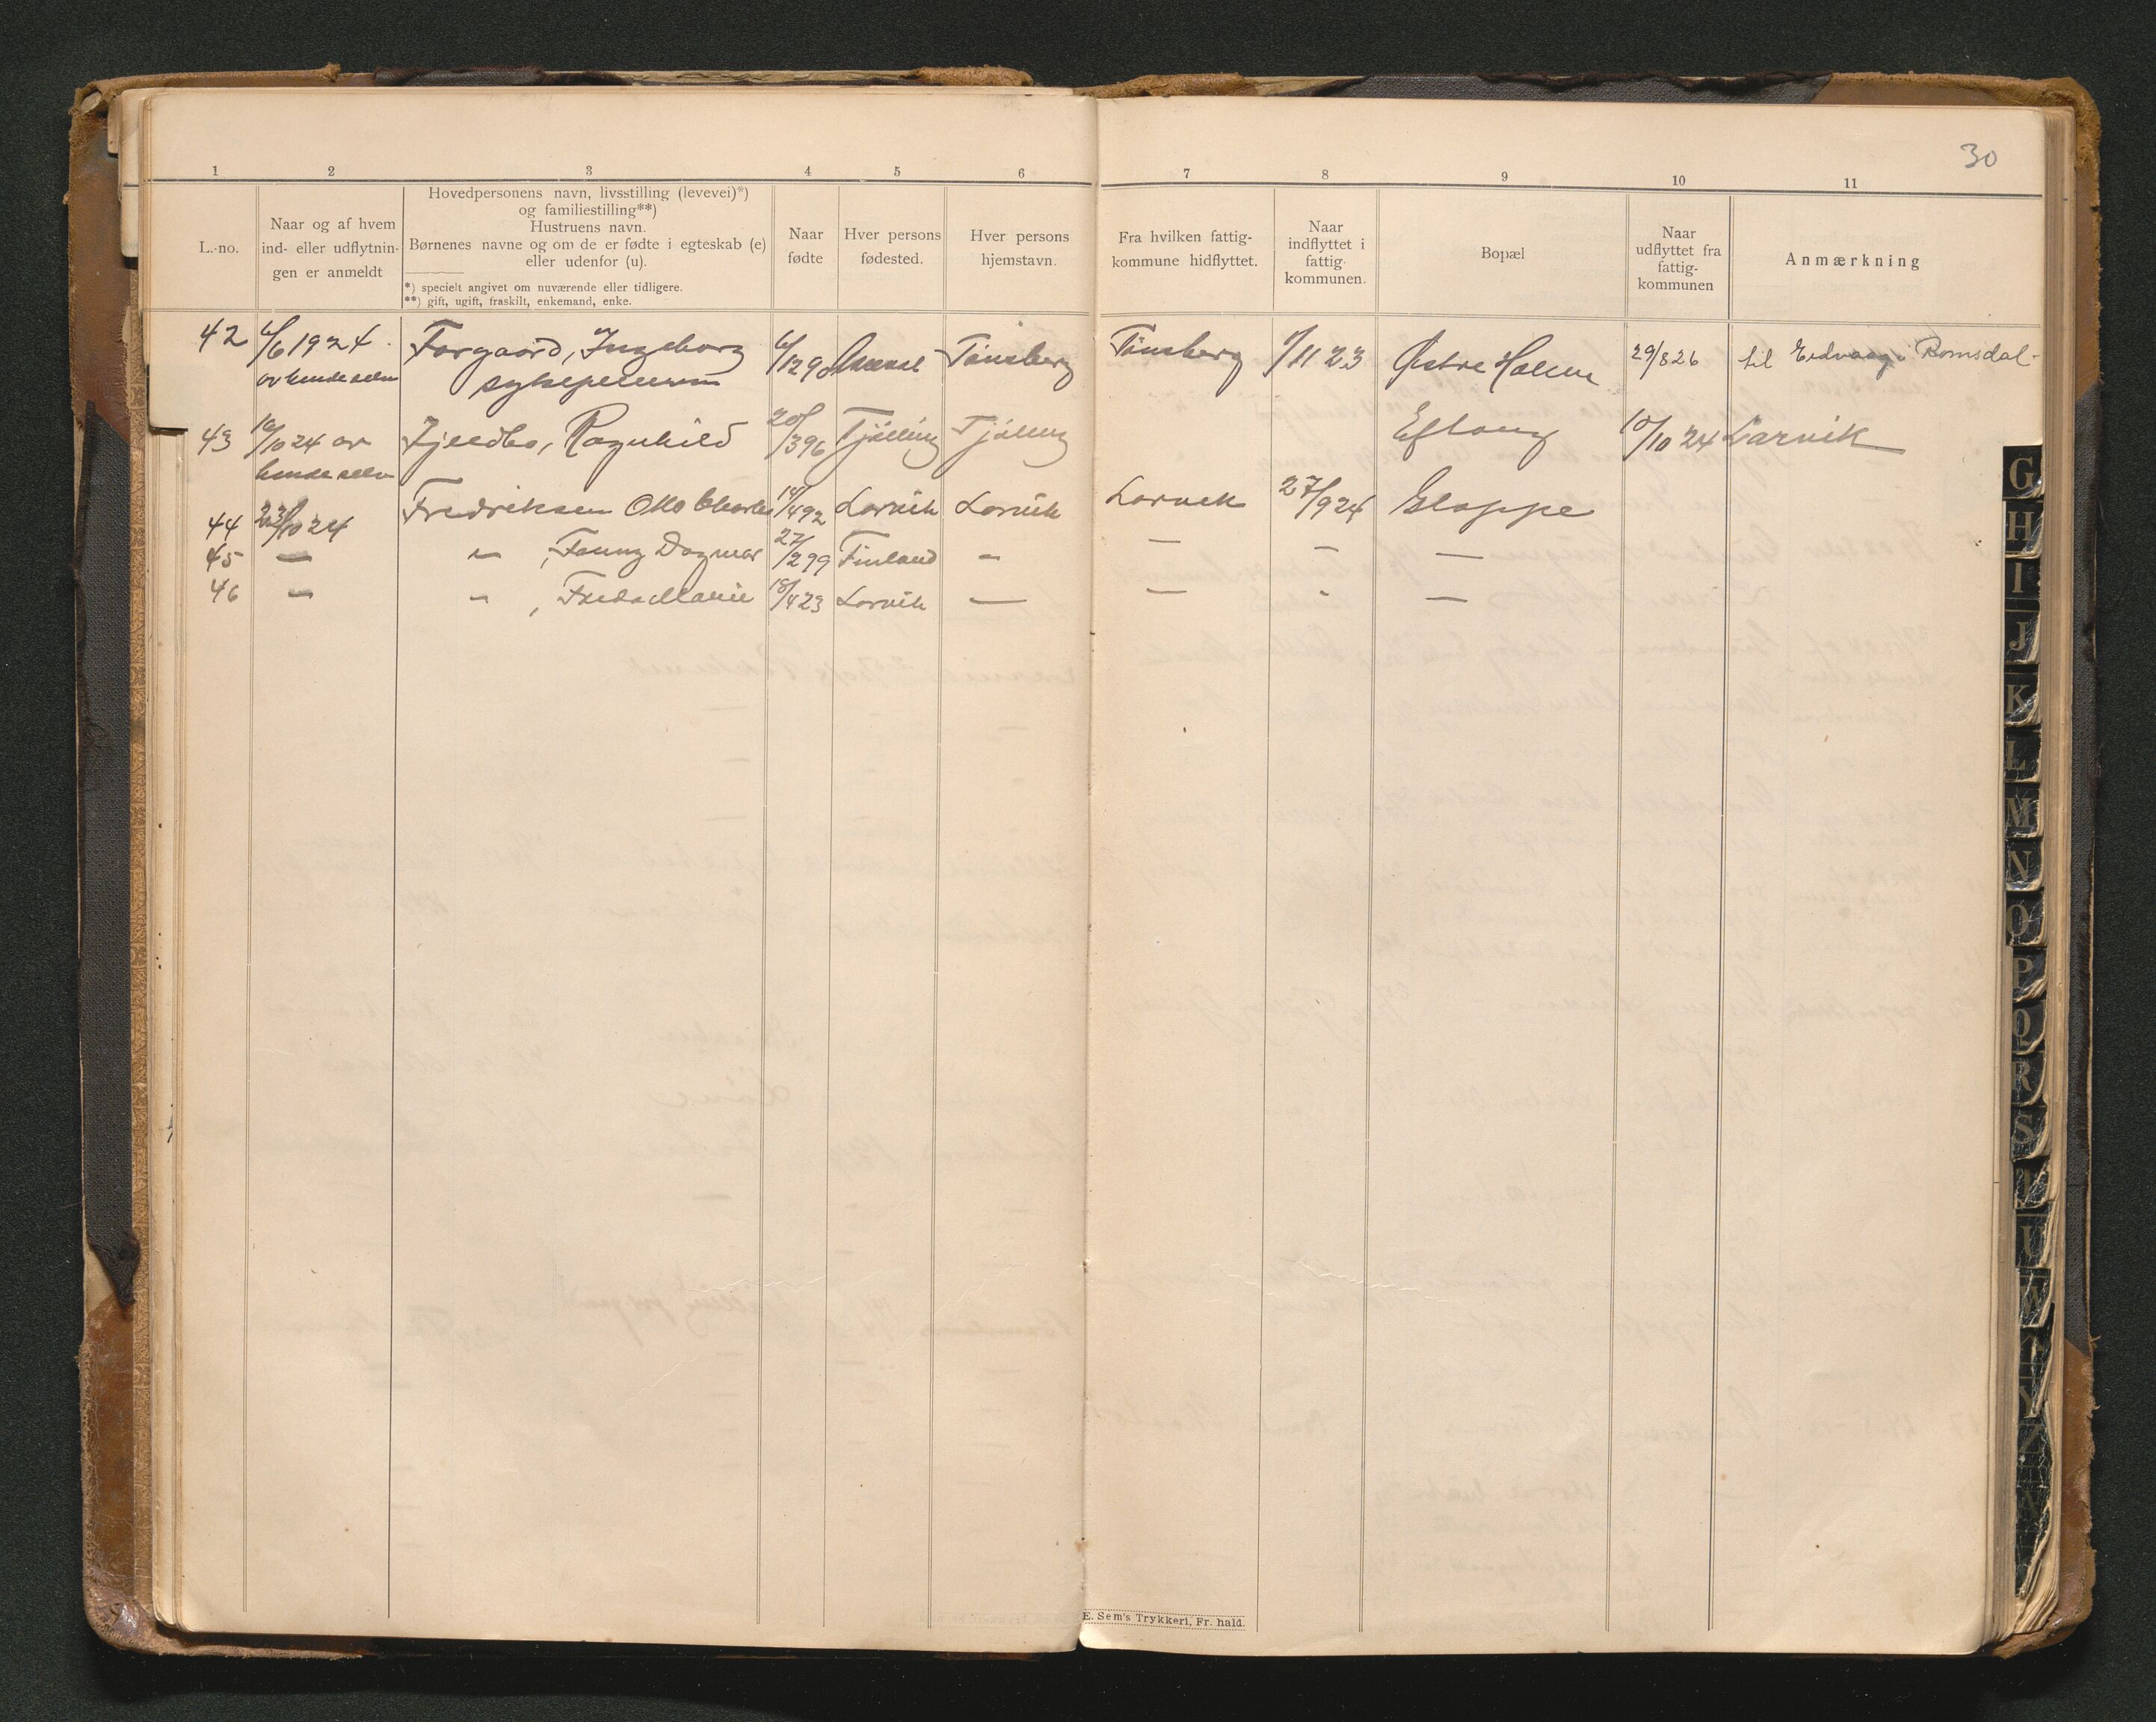 30
1 2 3 4 5 6 7 8 9 10 11
L.-no.
Naar og af hvem
ind- eller udflytnin-
gen er anmeldt
Hovedpersonens navn, livsstilling (levevei)*)
og familiestilling**)
Hustruens navn.
Børnenes navne og om de er fødte i egteskab (e)
eller udenfor (u).
*) specielt angivet om nuværende eller tidligere.
**) gift, ugift, fraskilt, enkemand, enke.
Naar
fødte
Hver persons
fødested.
Hver persons
hjemstavn.
Fra hvilken fattig-
kommune hidflyttet.
Naar
indflyttet i
fattig-
kommunen.
Bopæl
Naar
udflyttet fra
fattig-
kommunen
Anmærkning
42 6/6 1924 Forgaard, Ingeborg Tønsberg Tønsberg 1/11 23 Østre Halsen 29/8 26 til Eidvaag i Romsdal
av hende selv
43 10/10 24 av Fjeldbo, Ragnhild 20/3 96 Tjølling Tjølling Eftang 10/10 24 Larvik
hende selv
44 23/10 24 Fredriksen Otto Charles 14/4 92 Larvik Larvik Larvik 27/9 24 Gloppe
45 — " , Fanny Dagmar 27/2 99 Finland — — — —
46 — " , Frida Marie 18/4 23 Larvik — — " —
E. Sem's Trykkeri, Fr. hald.
G
H
I
J
K
L
M
N
O
P
Q
R
S
U
W
Y
Z